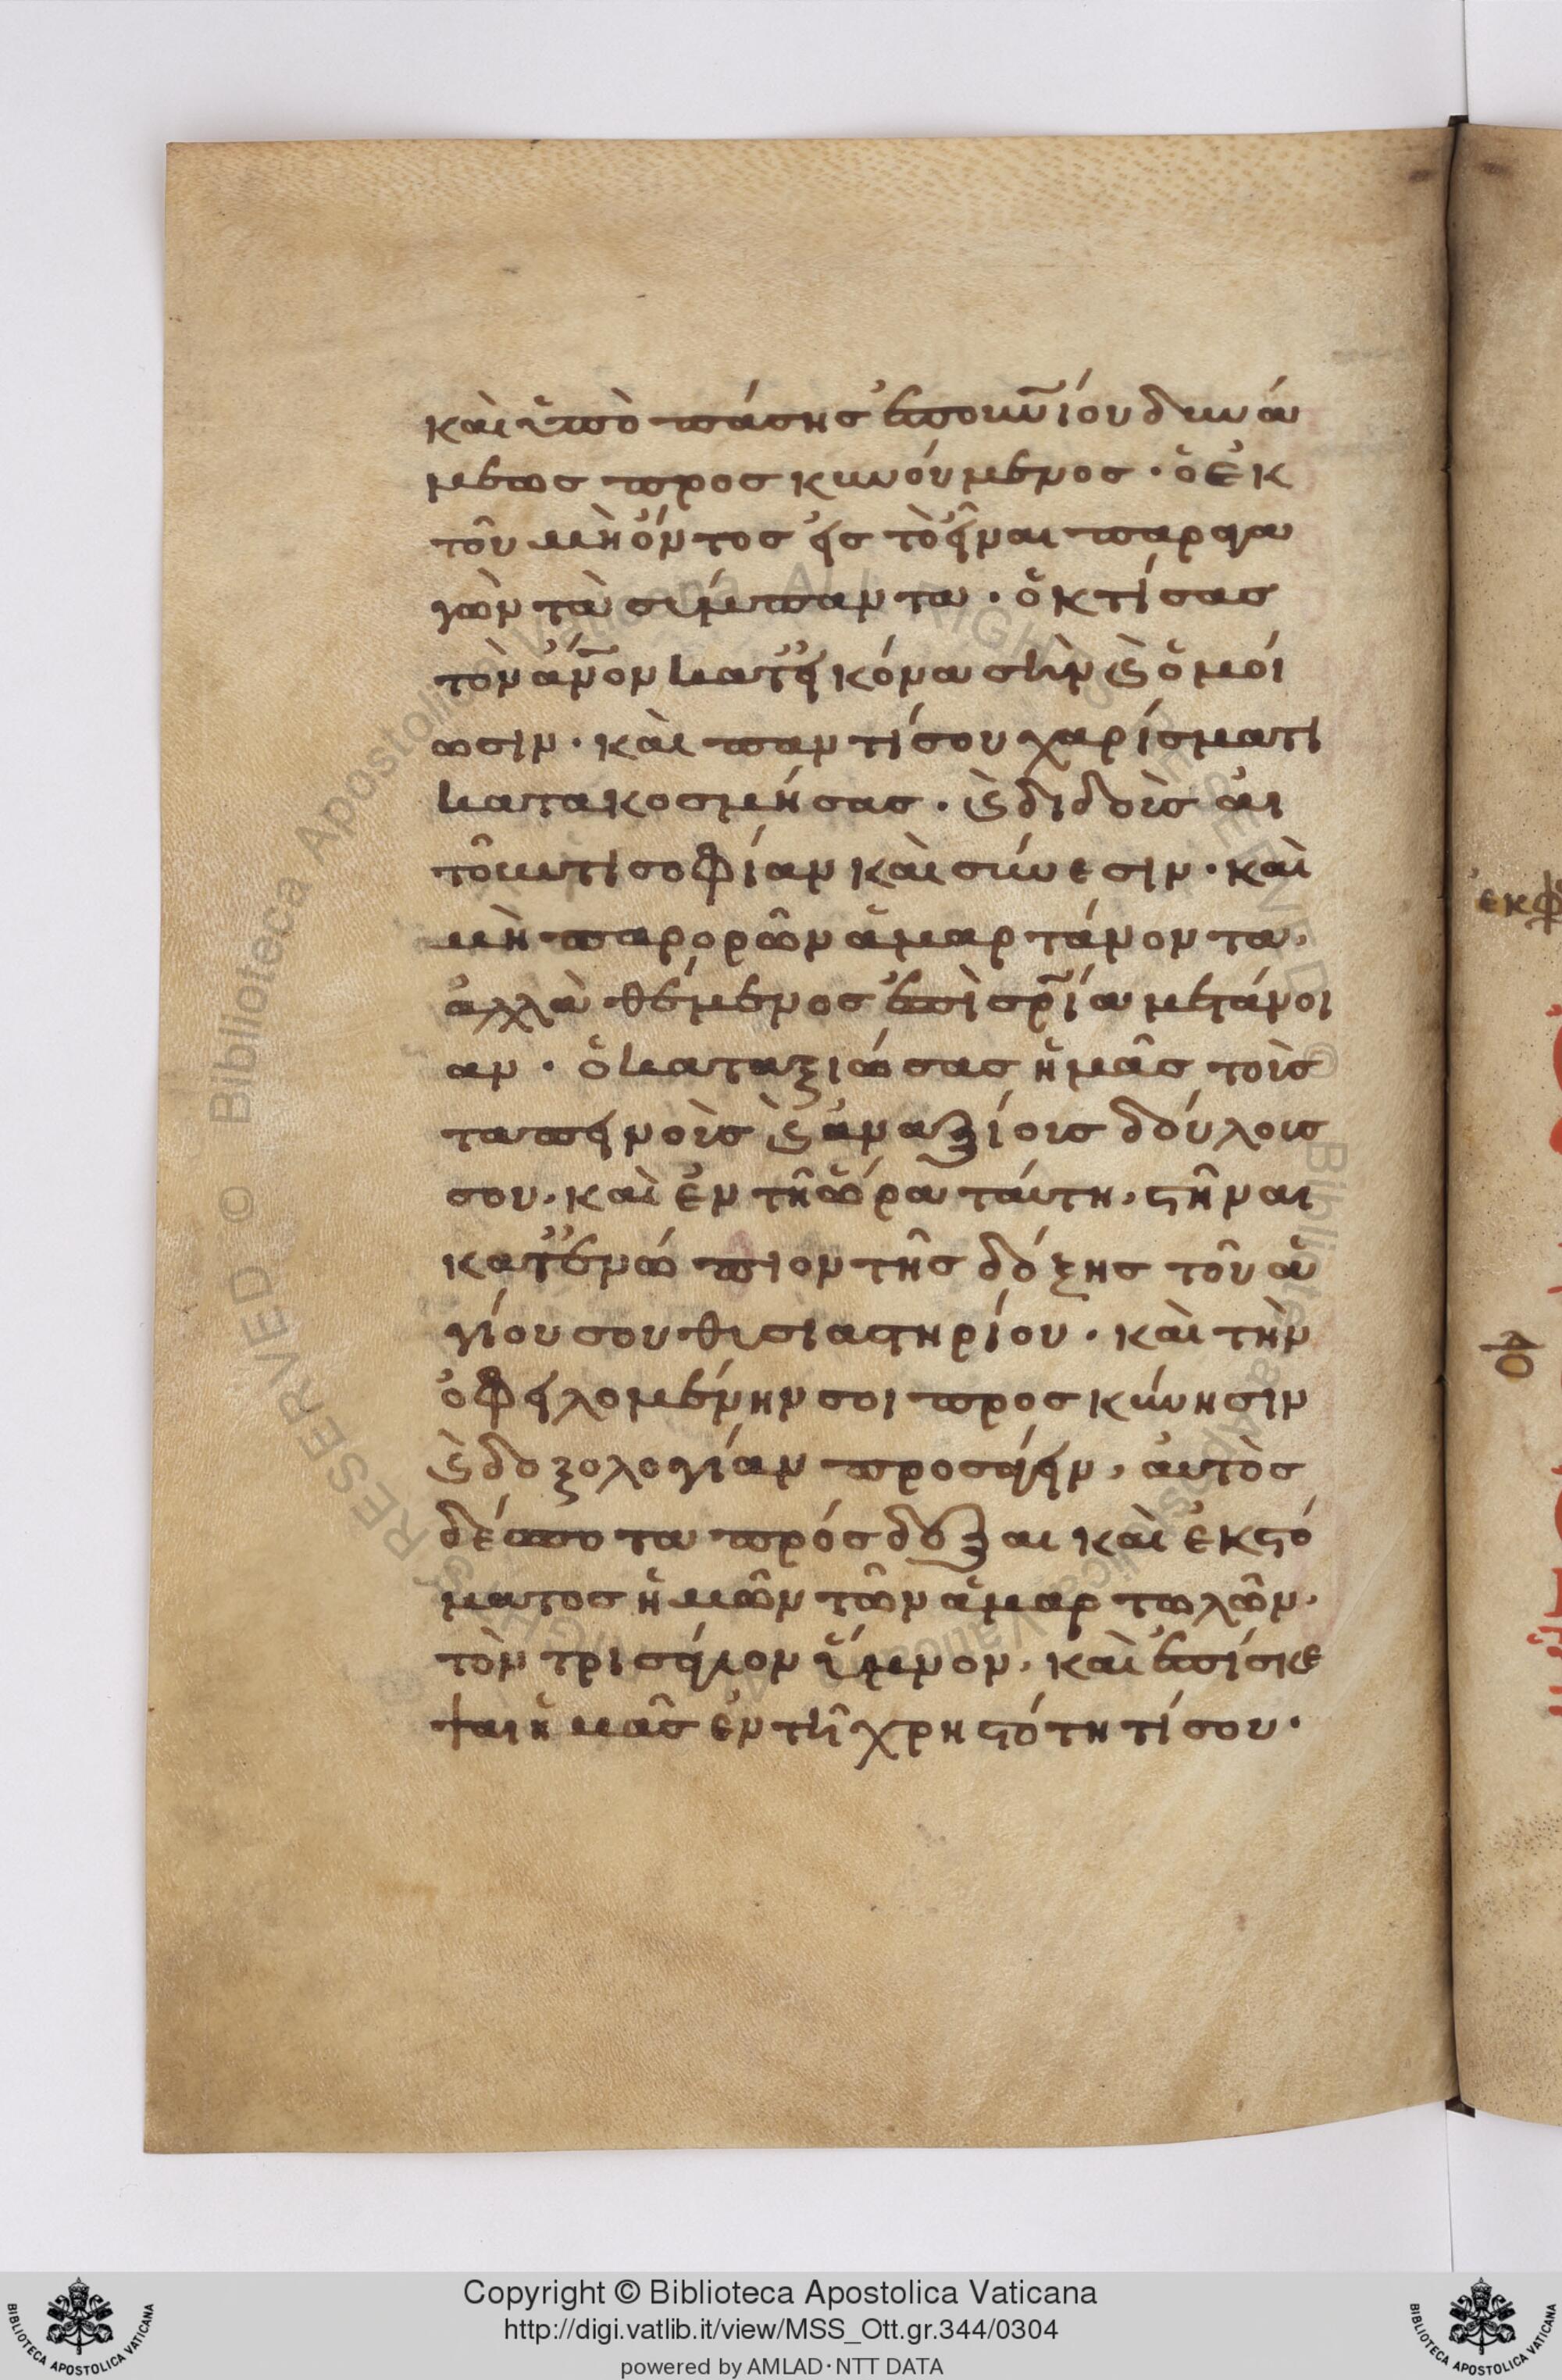 καὶ ὑπὸ πάσης ἐπουνίου δυνά
μεως προσκυνούμενος · ὁ ἐκ
τοῦ μὴ ὄντος εἰς τὸ εἶναι παραγα
γὼν τὰ σύμπαντα · ὁ κτίσας
τὸν ἄνον κατ εἰκόνα σὴν καὶ ὁμοί
ωσιν · καὶ παντί σου χαρίσματι
κατακοσμήσας · καὶ διδοὺς αἰ
τοῦντι σοφίαν καὶ σύνεσιν · καὶ
μὴ παρορῶν ἁμαρτάνοντα,
ἀλλὰ θέμενος ἐπὶ σρίᾳ μετάνοι
αν · ὁ καταξιώσας ἡμᾶς τοὺς
ταπεινοὺς καὶ ἀναξίους δούλους
σου, καὶ ἐν τῇ ὥρᾳ ταύτῃ, στῆναι
κατενώπιον τῆς δόξης τοῦ ἁ
γίου σου θυσιαστηρίου · καὶ τὴν
ὀφειλομένην σοι προσκύνησιν
καὶ δοξολογίαν προσάγειν, αὐτὸς
δέσποτα πρόσδεξαι καὶ ἐκ στό
ματος ἡμῶν τῶν ἁμαρτωλῶν,
τὸν τρισάγιον ὕμνον, καὶ ἐπίσκε
ψαι ἡμᾶς ἐν τῇ χρηστότητί σου ·
ἐκφ
Copyright © Biblioteca Apostolica Vaticana
http://digi.vatlib.it/view/MSS_Ott.gr.344/0304
powered by AMLAD·NTT DATA
BIBLIOTECA APOSTOLICA VATICANA
BIBLIOTECA APOSTOLICA VATICANA